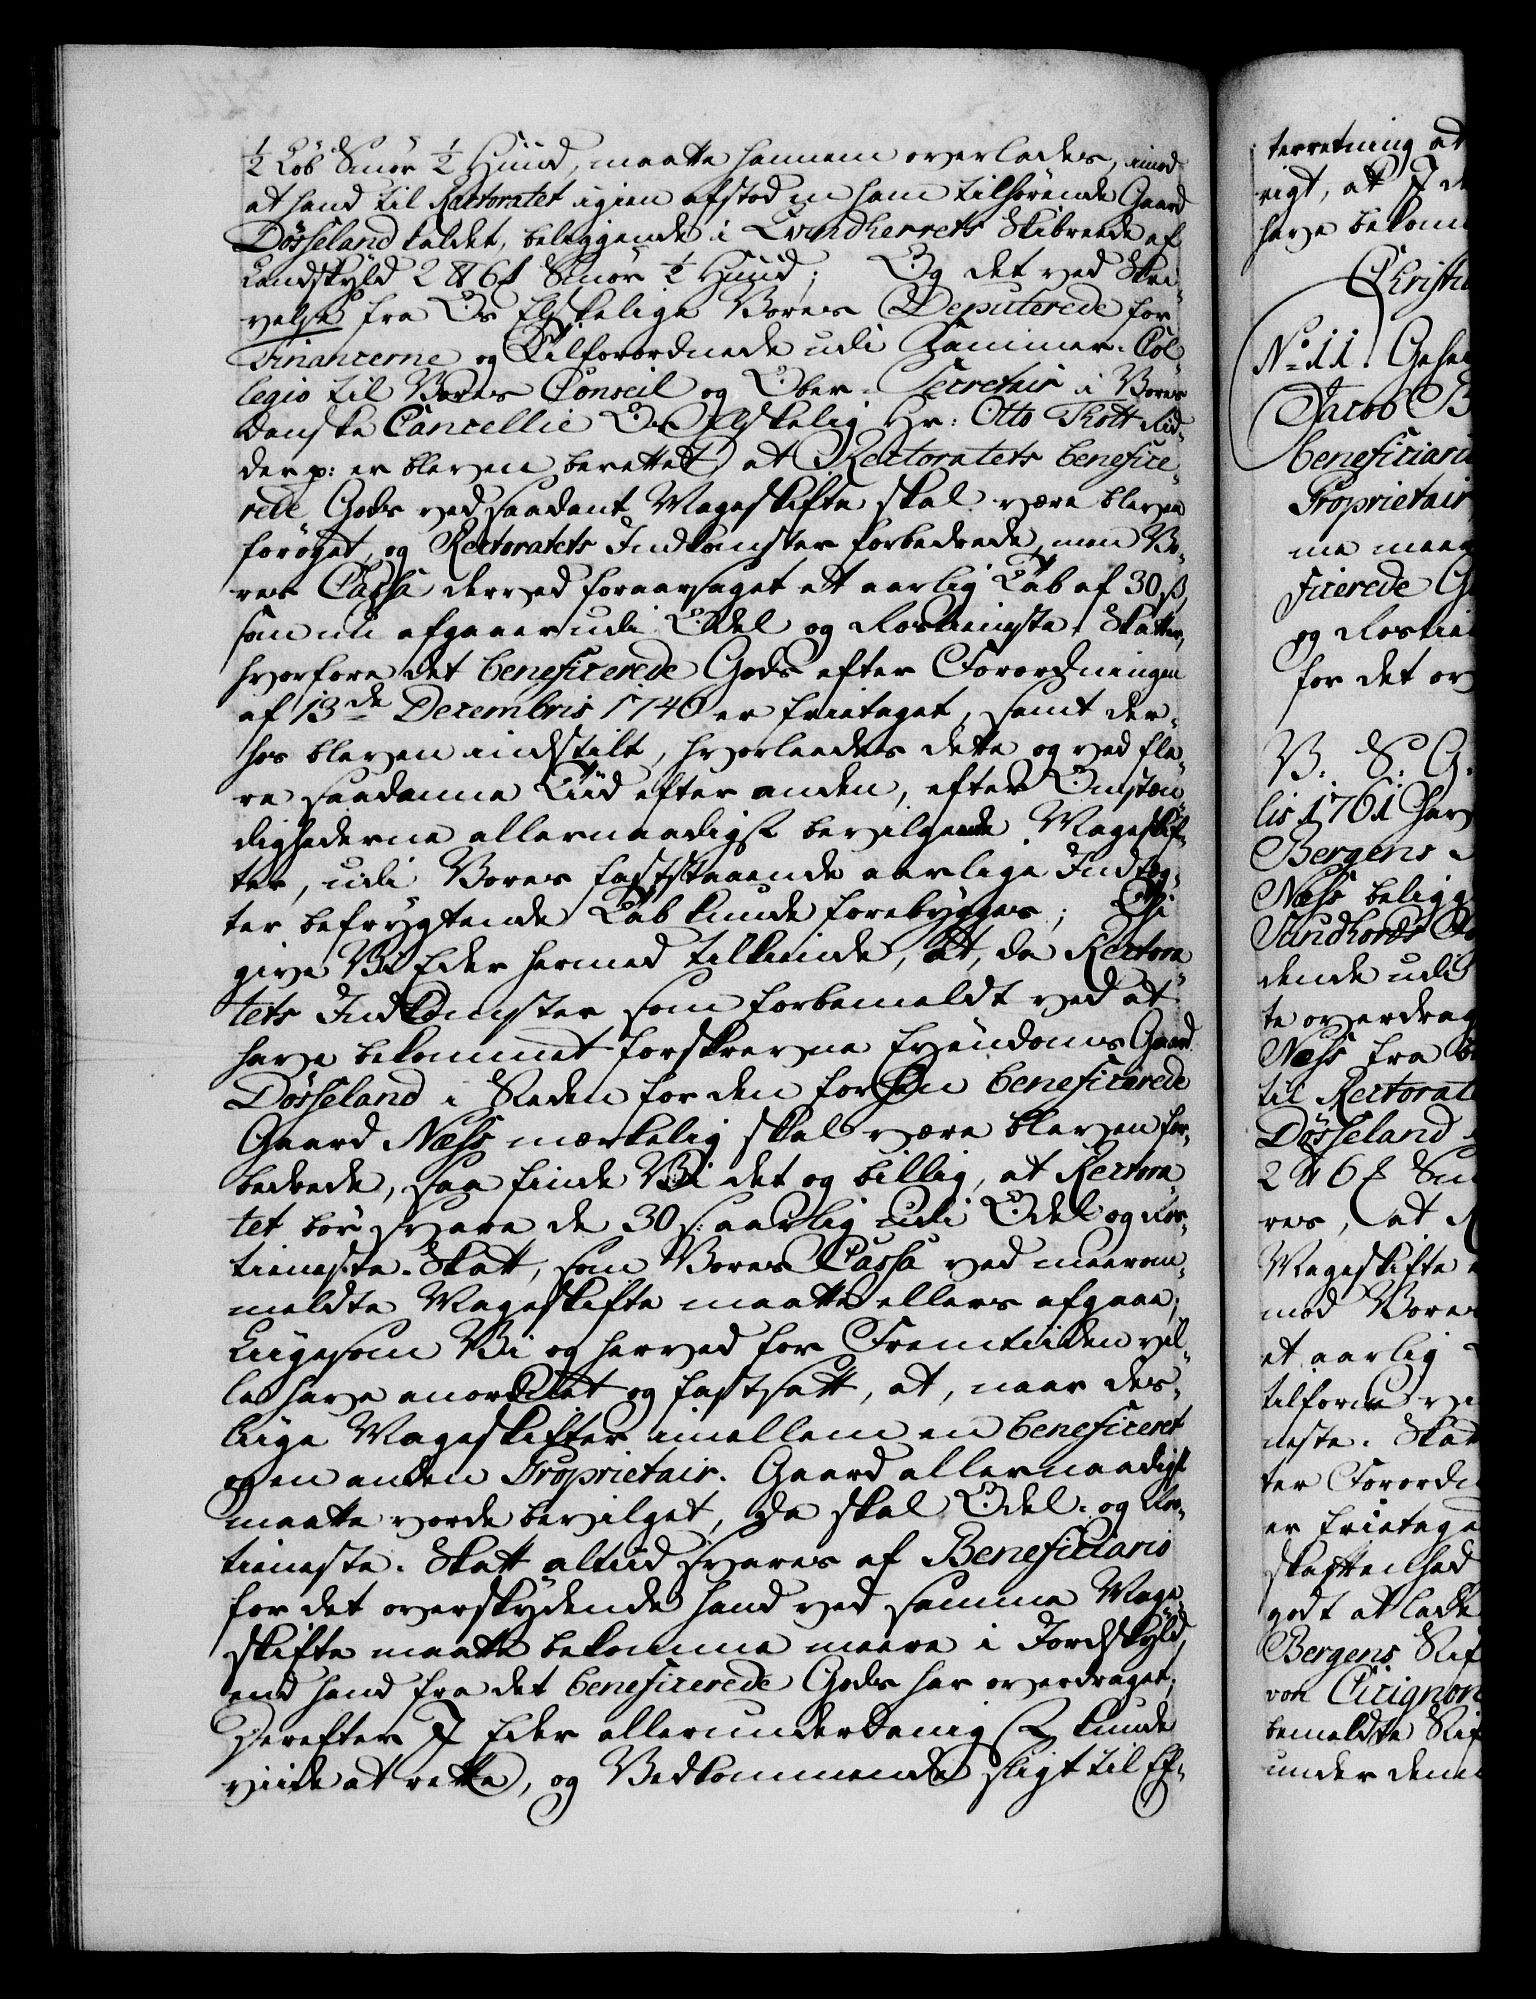 ½ Löb Smör ½ Huud, maatte hannem overlades, imod
at hand til Rectoratet igien afstod en ham tilhörende Gaard
Dösseland kaldet, beliggende i Qvindherrets Skibreede af
Landskyld 2 ƐƷ 6 Smör ½ Huud; Og det ved Skri-
velse fra Os Elskelige Vores Deputerede for
Financerne og Tilforordnede udi Cammer-Col-
legio til Vores Conseil og Ober-Secretair i Vores
danske Cancellie Os Elskelig Hr: Otto Thott Rid-
der p: er bleven berettet, at Rectoratets benefice-
rede Gods ved saadant Mageskifte skal være bleven
foröget, og Rectoratets Indkomster forbedrede, men Vo-
res Cassa derved foraarsaget et aarlig Tab af 30 ß,
som nu afgaaer udi Odel og Rostieneste-Skatter,
hvorfore det beneficerede Gods efter Forordningen
af 13de Decembris 1746 er frietaget, samt der-
hos bleven indstilt, hvorleedes dette og ved fle-
re saadanne Tiid efter anden, efter Omstæn-
dighederne allernaadigst bevilgende Mageskif-
ter, udi Vores faststaaende aarlige Indtæg-
ter befrygtende Tab kunde forebygges; Thi
give Vi Eder hermed tilkiende, at, da Rectora-
tets Indkomster som forbemeldt ved at
have bekommet forskrevne Eyendoms Gaard
Dösseland i Steden for den forhen beneficerede
Gaard Næss merkelig skal være bleven for-
bedrede, saa finde Vi det og billig, at Rectora-
tet bör svare de 30 ß: aarlig udi Odel og Ros-
tieneste-Skatt, som Vores Cassa ved meerom-
meldte Mageskifte maatte ellers afgaae;
Liigesom Vi og herved for Fremtiiden vil-
le have anordnet og fastsatt, at, naar des-
liige Mageskifter imellem en beneficeret
og en anden Proprietair-Gaard allernaadigst
maatte vorde bevilget, da skal Odel- og Ros-
tieneste-Skatt altiid svares af Beneficiario
for det overskydende hand ved samme Mage-
skifte maatte bekomme meere i Jordskyld,
end hand fra det beneficerede Gods har overdraget;
Derefter I Eder allerunderdanigst kunde
viide at rette, og Vedkommende sligt til Ef-
terretning at
rigt, at I de
have bekom
Christia
No 11. Gehei
Jacob B
beneficiarii
Proprietair
me maag
ficerede G
og Rostien
for det ov
V. S. G.
lis 1761 hav
Bergens
Næss beligg
Sundhords
dende udi
te overdrag
Næss fra
til Rectorat
Dösseland
2 ƐƷ 6 Smö
res, at R
Mageskifte
mod Vores
et aarlig
tilforne
neste-Skat
ter Forordn
er frietaget
skaffenhed
godt at lade
Bergens Stif
von Cicignon
bemeldte Stif
under denne